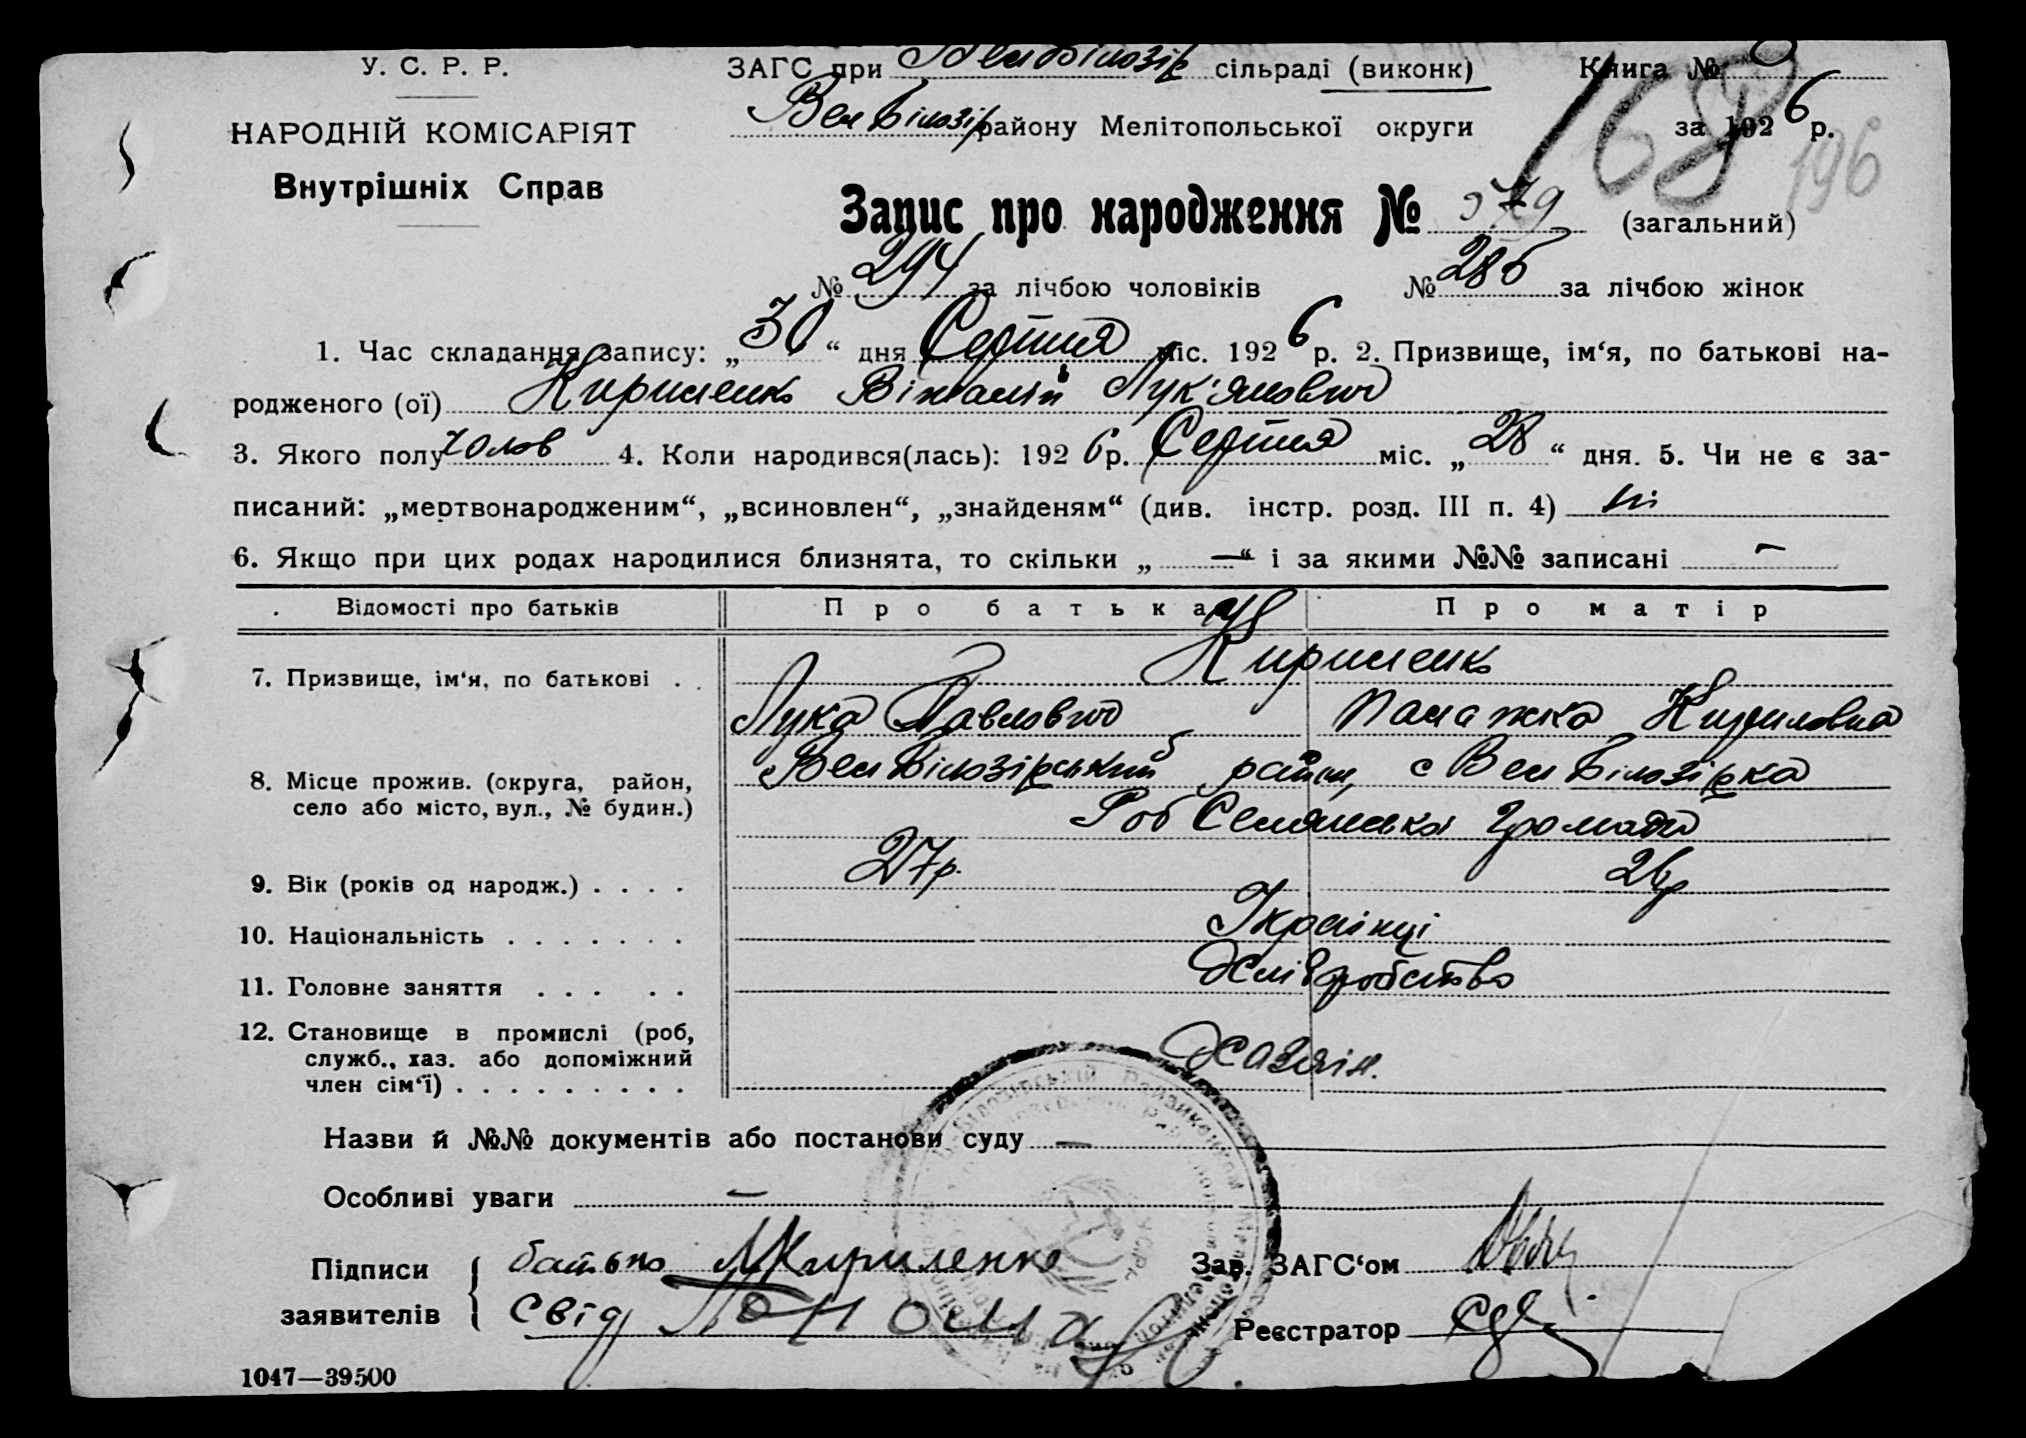 У. С. Р. Р.
НАРОДНІЙ КОМІСАРІЯТ
Внутрішніх Справ
ЗАГС при Велбілозір сільраді (виконк) Книга №
Вел Білозір району Мелітопольської округи за 1926 р.
168
196
Запис про народження № 579 (загальний)
№ 294 за лічбою чоловіків № 285 за лічбою жінок
1. Час складання запису: „30“ дня Серпня міс. 1926 р. 2. Призвище, ім‘я, по батькові на-
родженого (ої) Кириленко Віталій Лук'янович
3. Якого полу чолов 4. Коли народився(лась): 1926 р. Серпня міс. „28“ дня. 5. Чи не є за-
писаний: „мертвонародженим“, „всиновлен“, „знайденям“ (див. інстр. розд. III п. 4) ні
6. Якщо при цих родах народилися близнята, то скільки „—“ і за якими №№ записані —
Відомості про батьків Про батька Про матір
7. Призвище, ім‘я, по батькові . . Кириленко
Лука Павлович Палажка Кириловна
8. Місце прожив. (округа, район, Вел Білозірський район, с Вел Білозірка
село або місто, вул., № будин.) Роб Селянської громади
9. Вік (років од народж.) . . . . 27р. 26р
10. Національність . . . . . . . Українці
11. Головне заняття . . . . . Хліборобство
12. Становище в промислі (роб,
служб., хаз. або допоміжний Хазяін.
член сім‘ї) . . . . . . . . .
Назви й №№ документів або постанови суду —
Особливі уваги —
Підписи батько Л Кириленко Зав. ЗАГС‘ом
заявителів свід Реєстратор
1047—39500